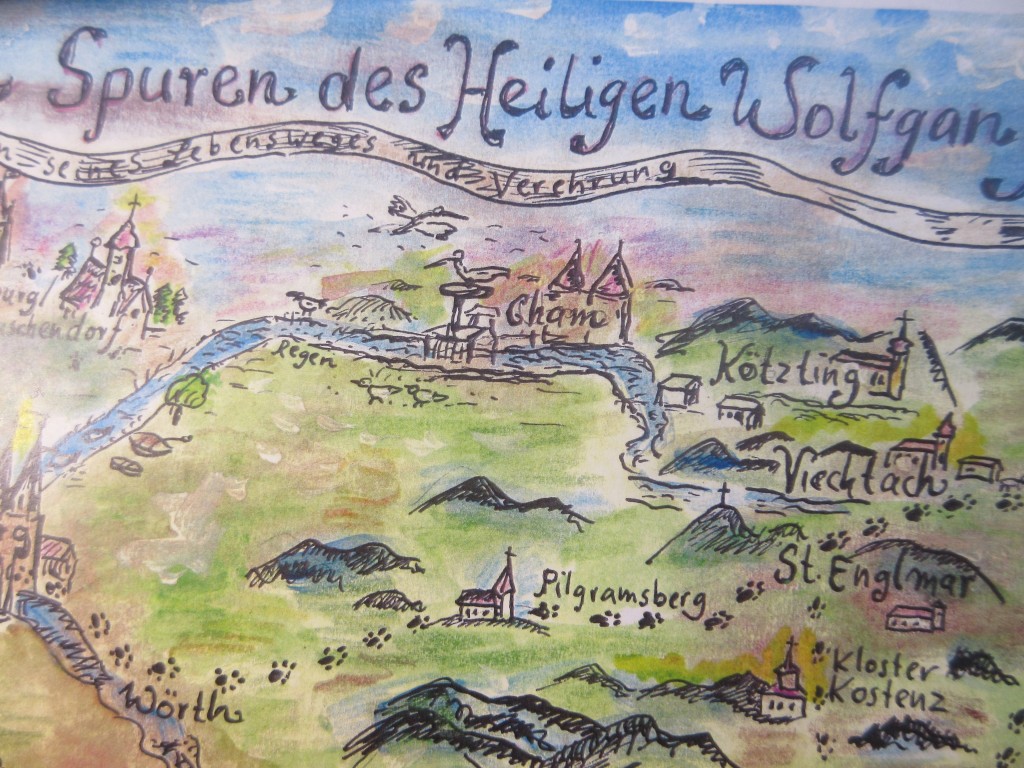 Spuren des Heiligen Wolfgan
seines Lebensweges und Verehrung
Cham
Regen
Kötzting
Viechtach
St. Englmar
Pilgramsberg
Kloster
Kostenz
Wörth